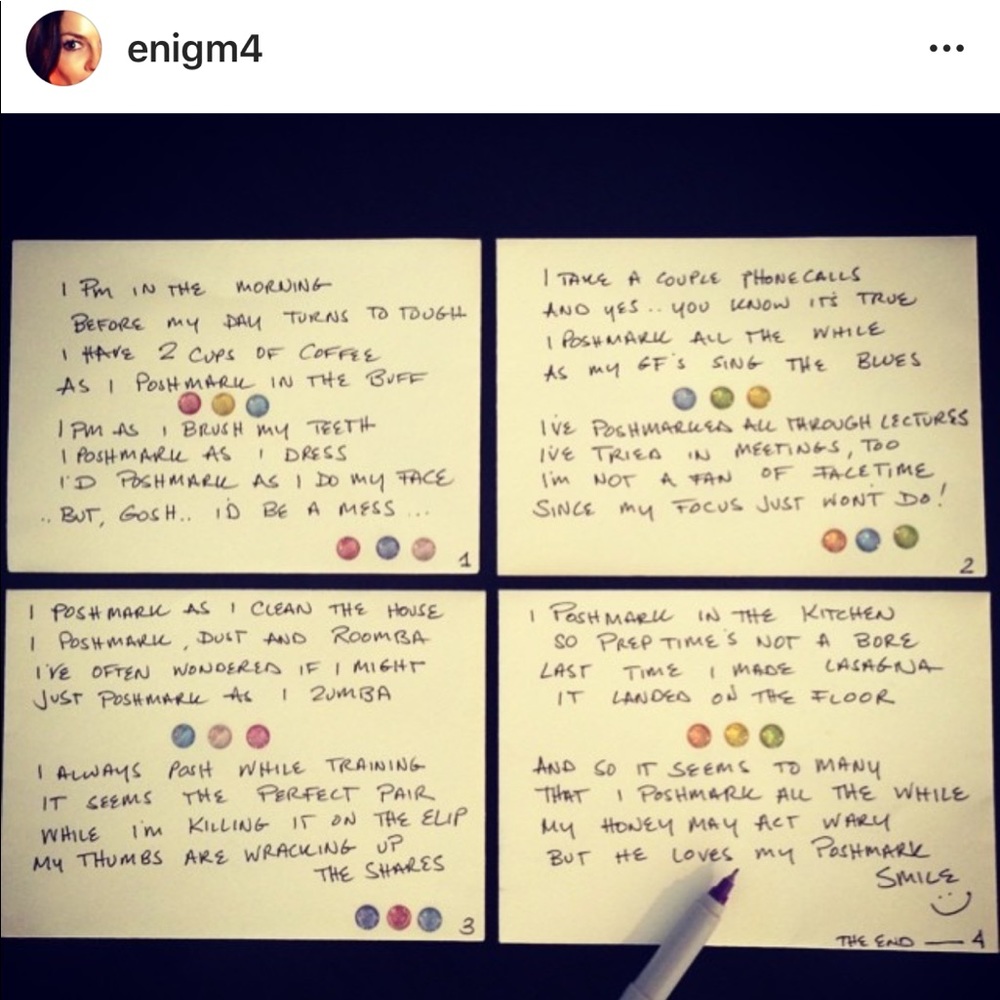 enigm4
I PM IN THE MORNING
BEFORE MY DAY TURNS TO TOUGH
I HAVE 2 CUPS OF COFFEE
AS I POSHMARK IN THE BUFF
I PM AS I BRUSH MY TEETH
I POSHMARK AS I DRESS
I'D POSHMARK AS I DO MY FACE
.. BUT, GOSH.. I'D BE A MESS ...
1
I TAKE A COUPLE PHONECALLS
AND YES.. YOU KNOW IT'S TRUE
I POSHMARK ALL THE WHILE
AS MY GF'S SING THE BLUES
I'VE POSHMARKED ALL THROUGH LECTURES
I'VE TRIED IN MEETINGS, TOO
I'M NOT A FAN OF FACETIME
SINCE MY FOCUS JUST WON'T DO!
2
I POSHMARK AS I CLEAN THE HOUSE
I POSHMARK, DUST AND ROOMBA
I'VE OFTEN WONDERED IF I MIGHT
JUST POSHMARK AS I ZUMBA
I ALWAYS POSH WHILE TRAINING
IT SEEMS THE PERFECT PAIR
WHILE I'M KILLING IT ON THE ELIP
MY THUMBS ARE WRACKING UP
THE SHARES
3
I POSHMARK IN THE KITCHEN
SO PREP TIME'S NOT A BORE
LAST TIME I MADE LASAGNA
IT LANDED ON THE FLOOR
AND SO IT SEEMS TO MANY
THAT I POSHMARK ALL THE WHILE
MY HONEY MAY ACT WARY
BUT HE LOVES MY POSHMARK
SMILE
THE END — 4